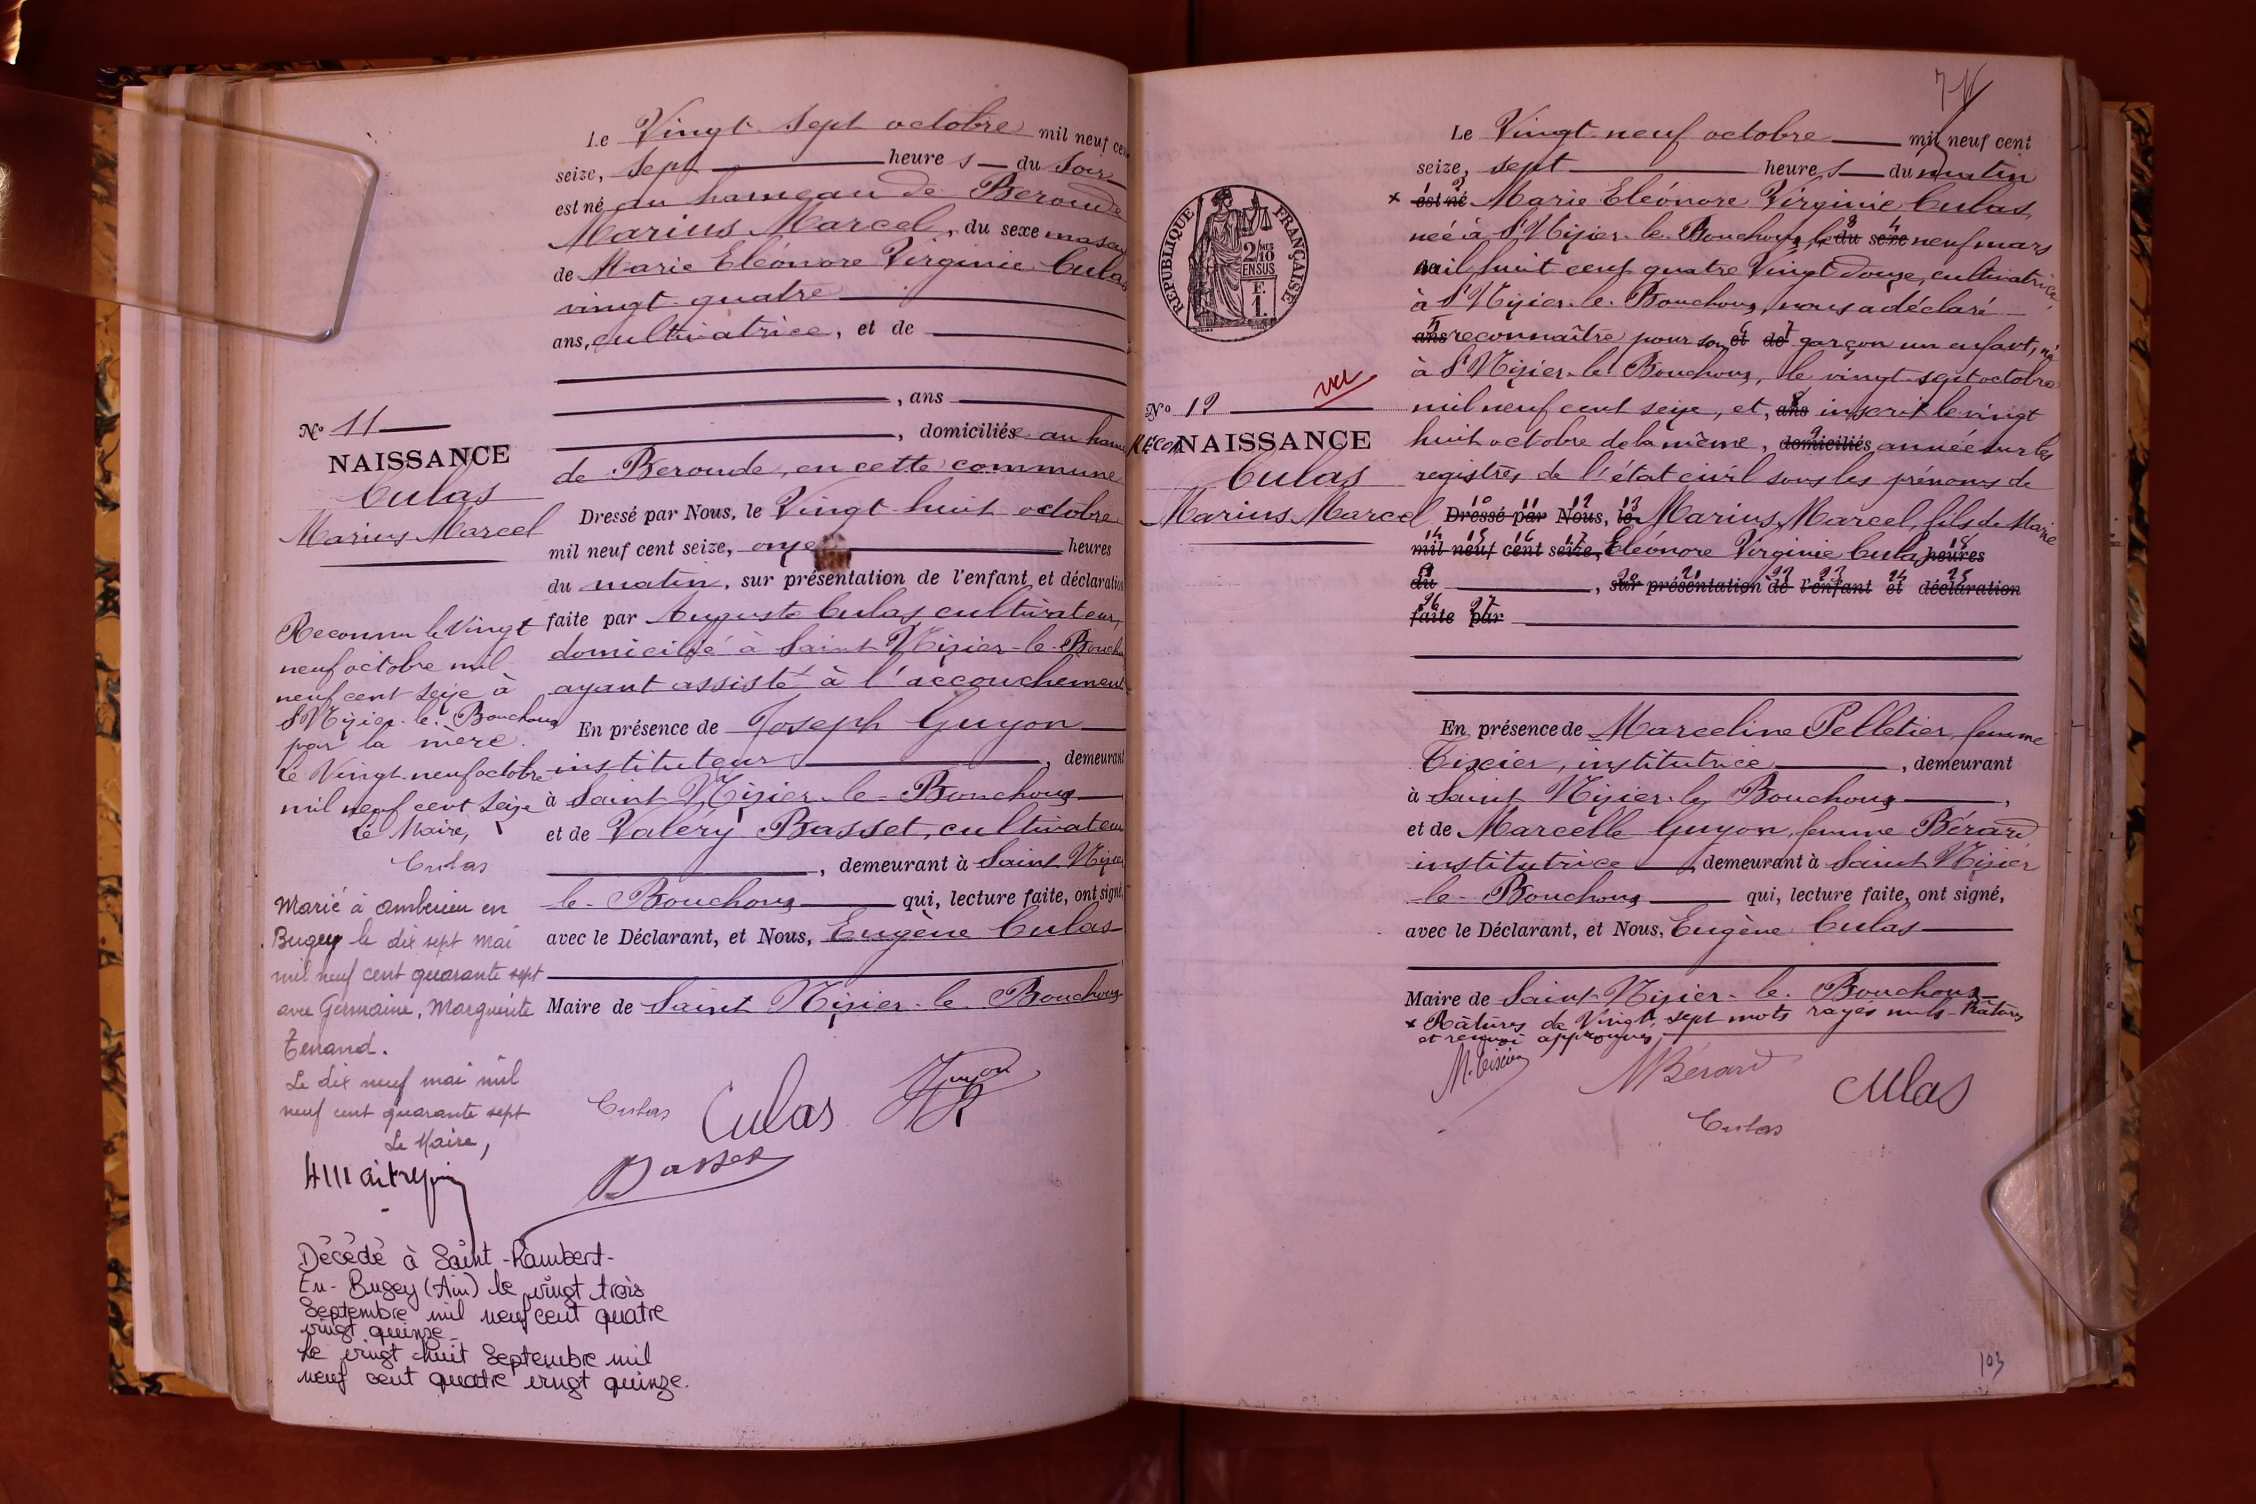 Le Vingt-sept octobre mil neuf cen
seize, sept heures du soir
est né au hameau de Beroude
Marius Marcel, du sexe mascu
de Marie Eléonore Virginie Culas
vingt-quatre
ans, cultivatrice, et de
, ans
, domiciliée au ham
de Beroude, en cette commune
Dressé par Nous, le Vingt huit octobre
mil neuf cent seize, onze heures
du matin, sur présentation de l'enfant et déclaration
faite par Auguste Culas cultivateur,
domicilié à Saint-Nizier-le-Bouchou
ayant assisté à l'accouchement
En présence de Joseph Guyon
instituteur, demeurant
à Saint Nizier-le-Bouchoux
et de Valéry Basset, cultivateur
, demeurant à Saint Nizier
le-Bouchoux qui, lecture faite, ont signé,
avec le Déclarant, et Nous, Eugène Culas
Maire de Saint Nizier-le-Bouchoux
Culas Culas Guyon
Basset
N° 11
NAISSANCE
Culas
Marius Marcel
Reconnu le Vingt
neuf octobre mil
neuf cent seize à
St Nizier-le-Bouchoux
par la mère.
le Vingt-neuf octobre
mil neuf cent seize
Le Maire,
Culas
Marié à Ambérieu en
Bugey le dix sept mai
mil neuf cent quarante sept
avec Germaine, Marguerite
Tenand.
Le dix neuf mai mil
neuf cent quarante sept
Le Maire,
Décédé à Saint-Rambert-
En-Bugey (Ain) le vingt trois
Septembre mil neuf cent quatre
vingt quinze
Le vingt huit Septembre mil
neuf cent quatre vingt quinze.
Le Vingt-neuf octobre mil neuf cent
seize, sept heures du matin
x est né Marie Eléonore Virginie Culas,
née à St Nizier-le-Bouchoux, le du sexe neuf mars
mil huit cent quatre vingt douze, cultivatrice
à St Nizier-le-Bouchoux, nous a déclaré
ans reconnaître pour son et de garçon un enfant, né
à St Nizier-le-Bouchoux, le vingt-sept octobre
mil neuf cent seize, et, ans inscrit le vingt
huit octobre de la même, domiciliés année sur les
registres de l'état civil sous les prénoms de
Dressé par Nous, le Marius, Marcel, fils de Marie
mil neuf cent seize, Eléonore Virginie Culas heures
du , sur présentation de l'enfant et déclaration
faite par
En présence de Marceline Pelletier, femme
Tixier, institutrice, demeurant
à Saint Nizier-le Bouchoux,
et de Marcelle Guyon, femme Bérard
institutrice, demeurant à Saint Nizier
le-Bouchoux qui, lecture faite, ont signé,
avec le Déclarant, et Nous, Eugène Culas
Maire de Saint-Nizier-le-Bouchoux
x Ratures de Vingt-sept mots rayés nuls. Ratures
et renvoi approuvés
M. Tixier M Bérard Culas
Culas
RÉPUBLIQUE FRANÇAISE
2/10
EN SUS
F.
1.
N° 12
vu
RECON NAISSANCE
Culas
Marius Marcel
103